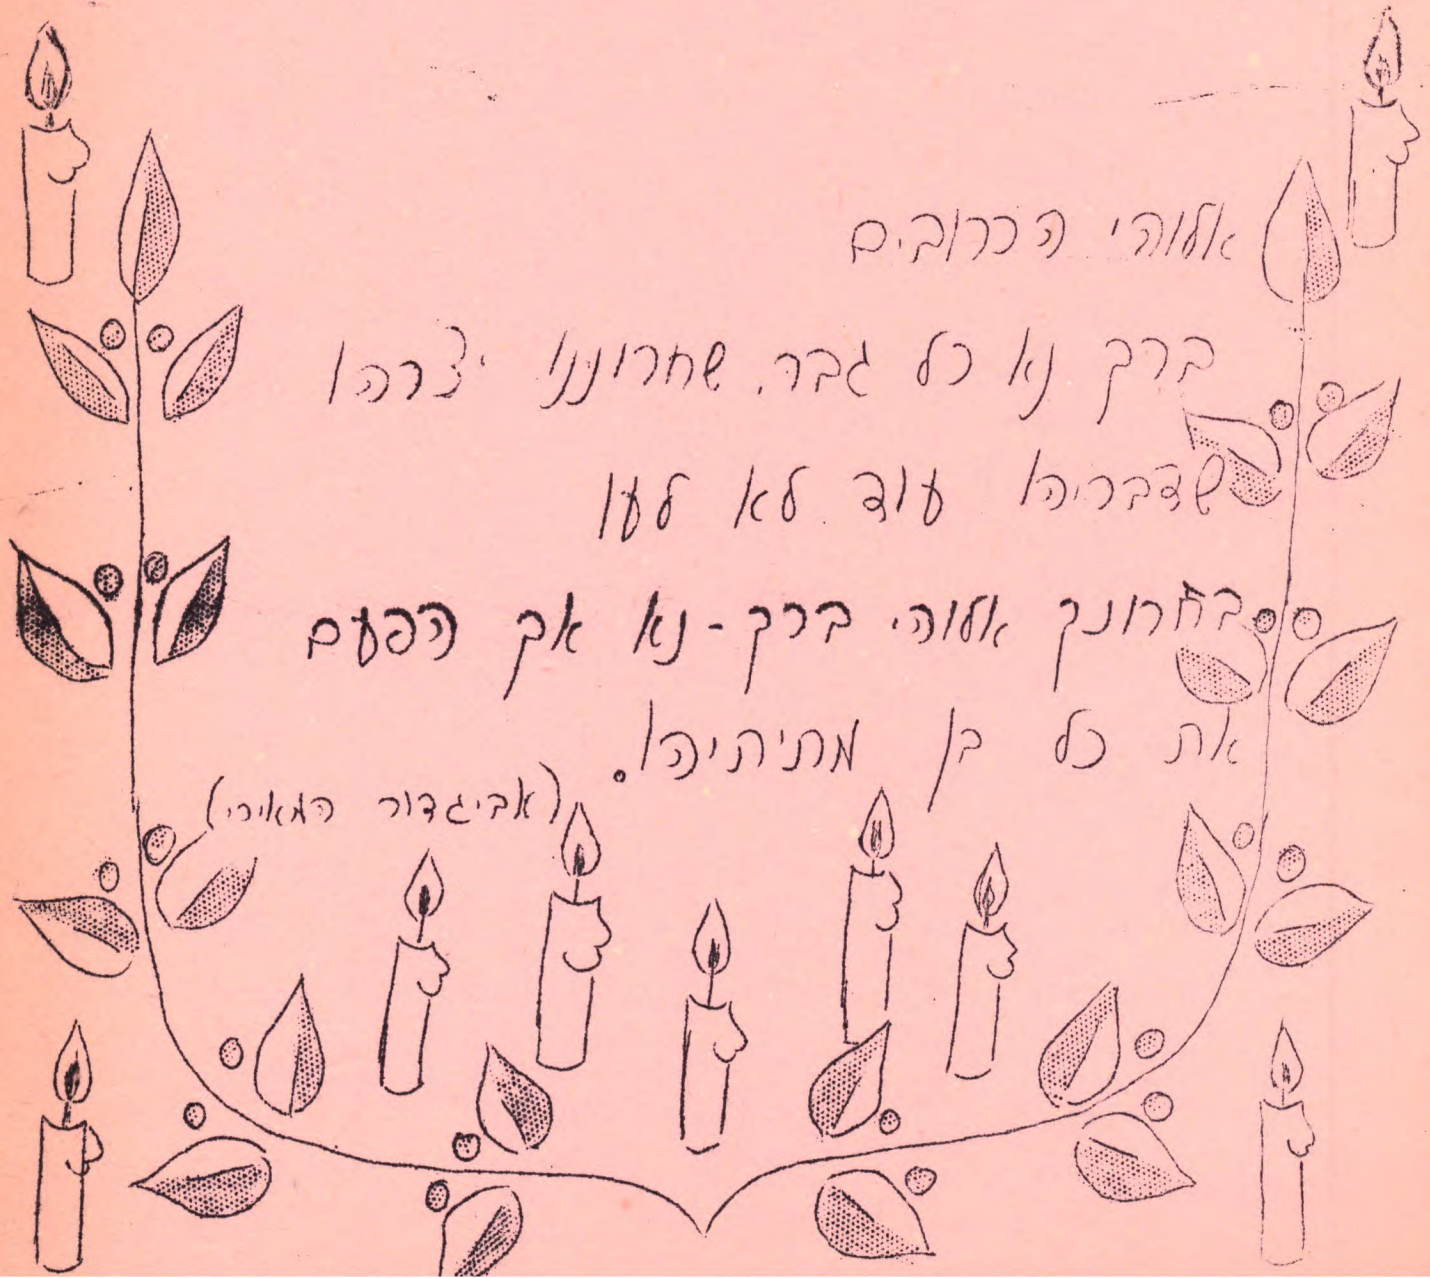 אלוהי הכרובים
ברך נא כל גבר, שחרוננו יצרהו
שדבריהו עוד לא לעו
בחרונך אלוהי ברך-נא אך הפעם
את כל בן מתיתיהו.
(אביגדור המאירי)